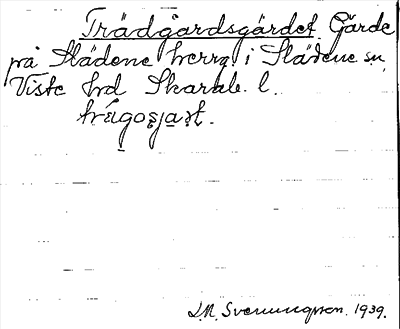 Trädgårdsgärdet. Gärde
på Slädene herrg. i Slädene sn,
Viste hrd Skarab. l.
trägosjat.
S.M. Svenungsson. 1939.